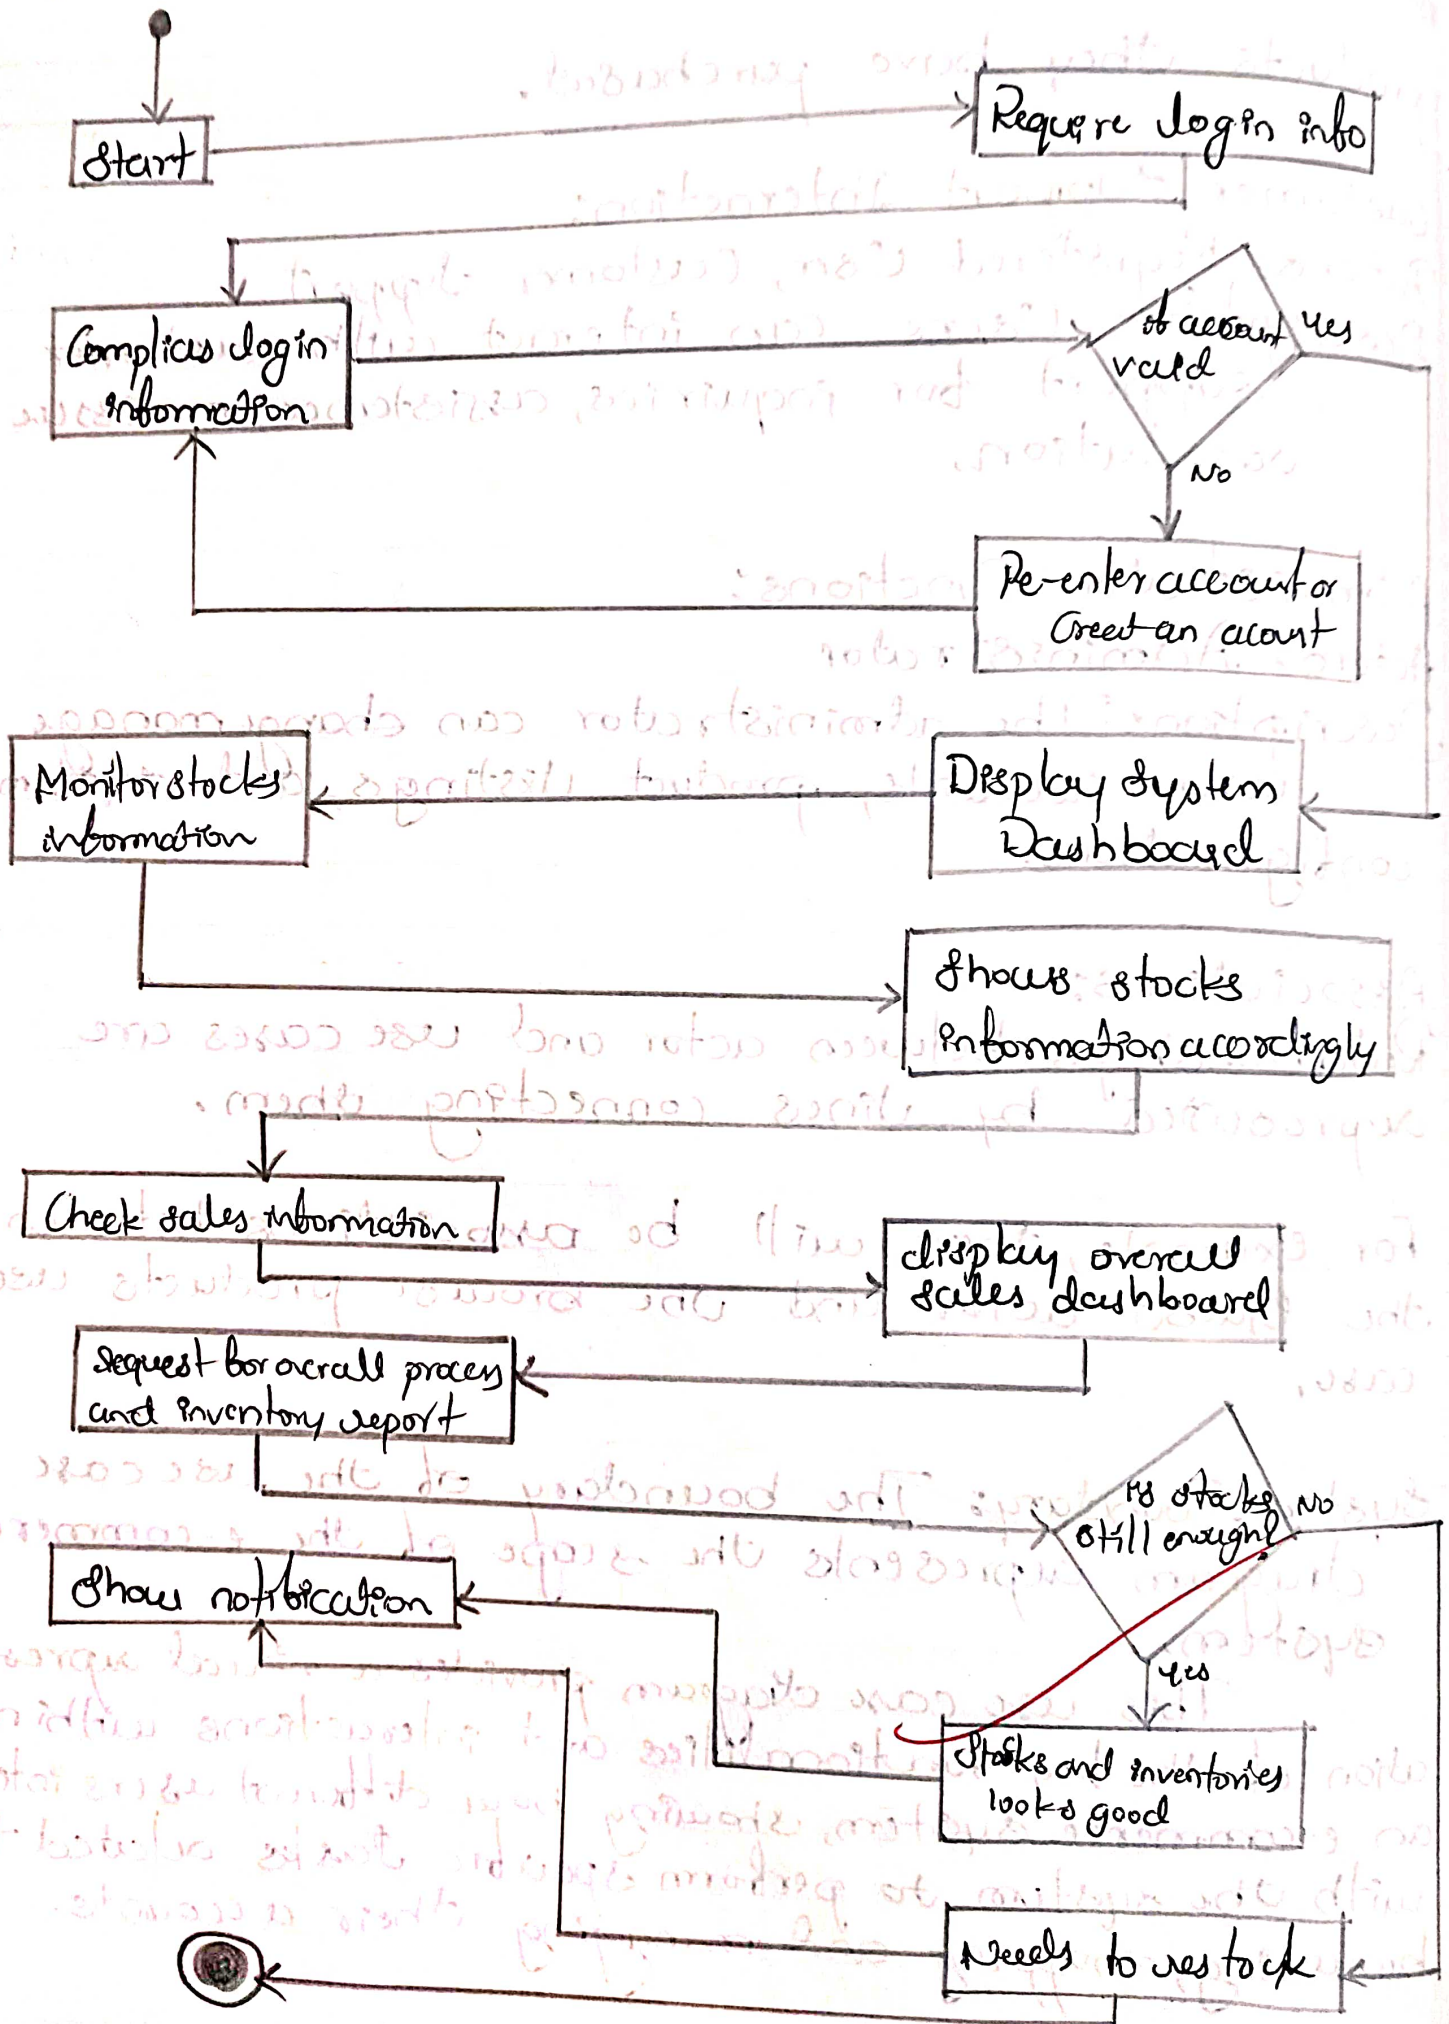 Start
Require login info
Complies login
information
if account
valid
Yes
No
Re-enter account or
Creat an acount
Monitor stocks
information
Display System
Dashboard
Shows stocks
information acordingly
Check sales information
display overall
sales dashboard
request for overall process
and inventory report
is stocks
still enough?
No
Show notification
yes
Stocks and inventories
looks good
Needs to restock